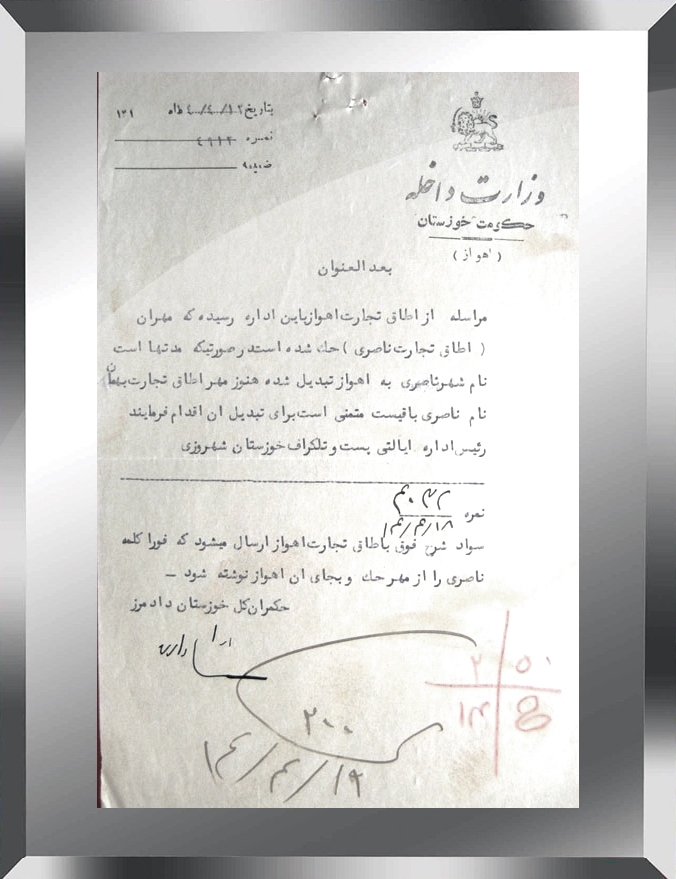 بتاریخ ۱۲/۴/۴ ماه ۱۳۱
نمره ۴۹۱۲
ضمیمه
وزارت داخله
حکومت خوزستان
(اهواز)
بعدالعنوان
مراسله از اطاق تجارت اهواز باین اداره رسیده که مهران
(اطاق تجارت ناصری) حك شده است در صورتیکه مدتها است
نام شهر ناصری به اهواز تبدیل شده هنوز مهر اطاق تجارت بهمان
نام ناصری باقیست متمنی است برای تبدیل ان اقدام فرمایند
رئیس اداره ایالتی پست و تلگراف خوزستان شهروزی
نمره
۱۸/۴/۱۴
سواد شرح فوق باطاق تجارت اهواز ارسال میشود که فورا کلمه
ناصری را از مهر حك و بجای ان اهواز نوشته شود –
حکمران کل خوزستان دادمرز
۲ ۵۰
۱۴
۲۰۰
۱۹/۴/۱۴